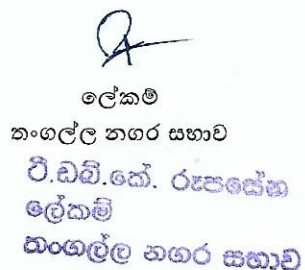 ලේකම්
තංගල්ල නගර සභාව
ටී.ඩබ්.කේ. රූපසේන
ලේකම්
තංගල්ල නගර සභාව